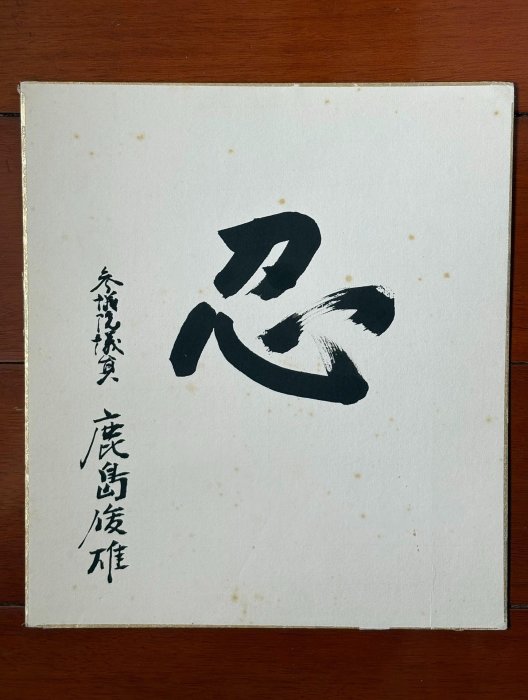 忍
参議院議員
鹿島俊雄